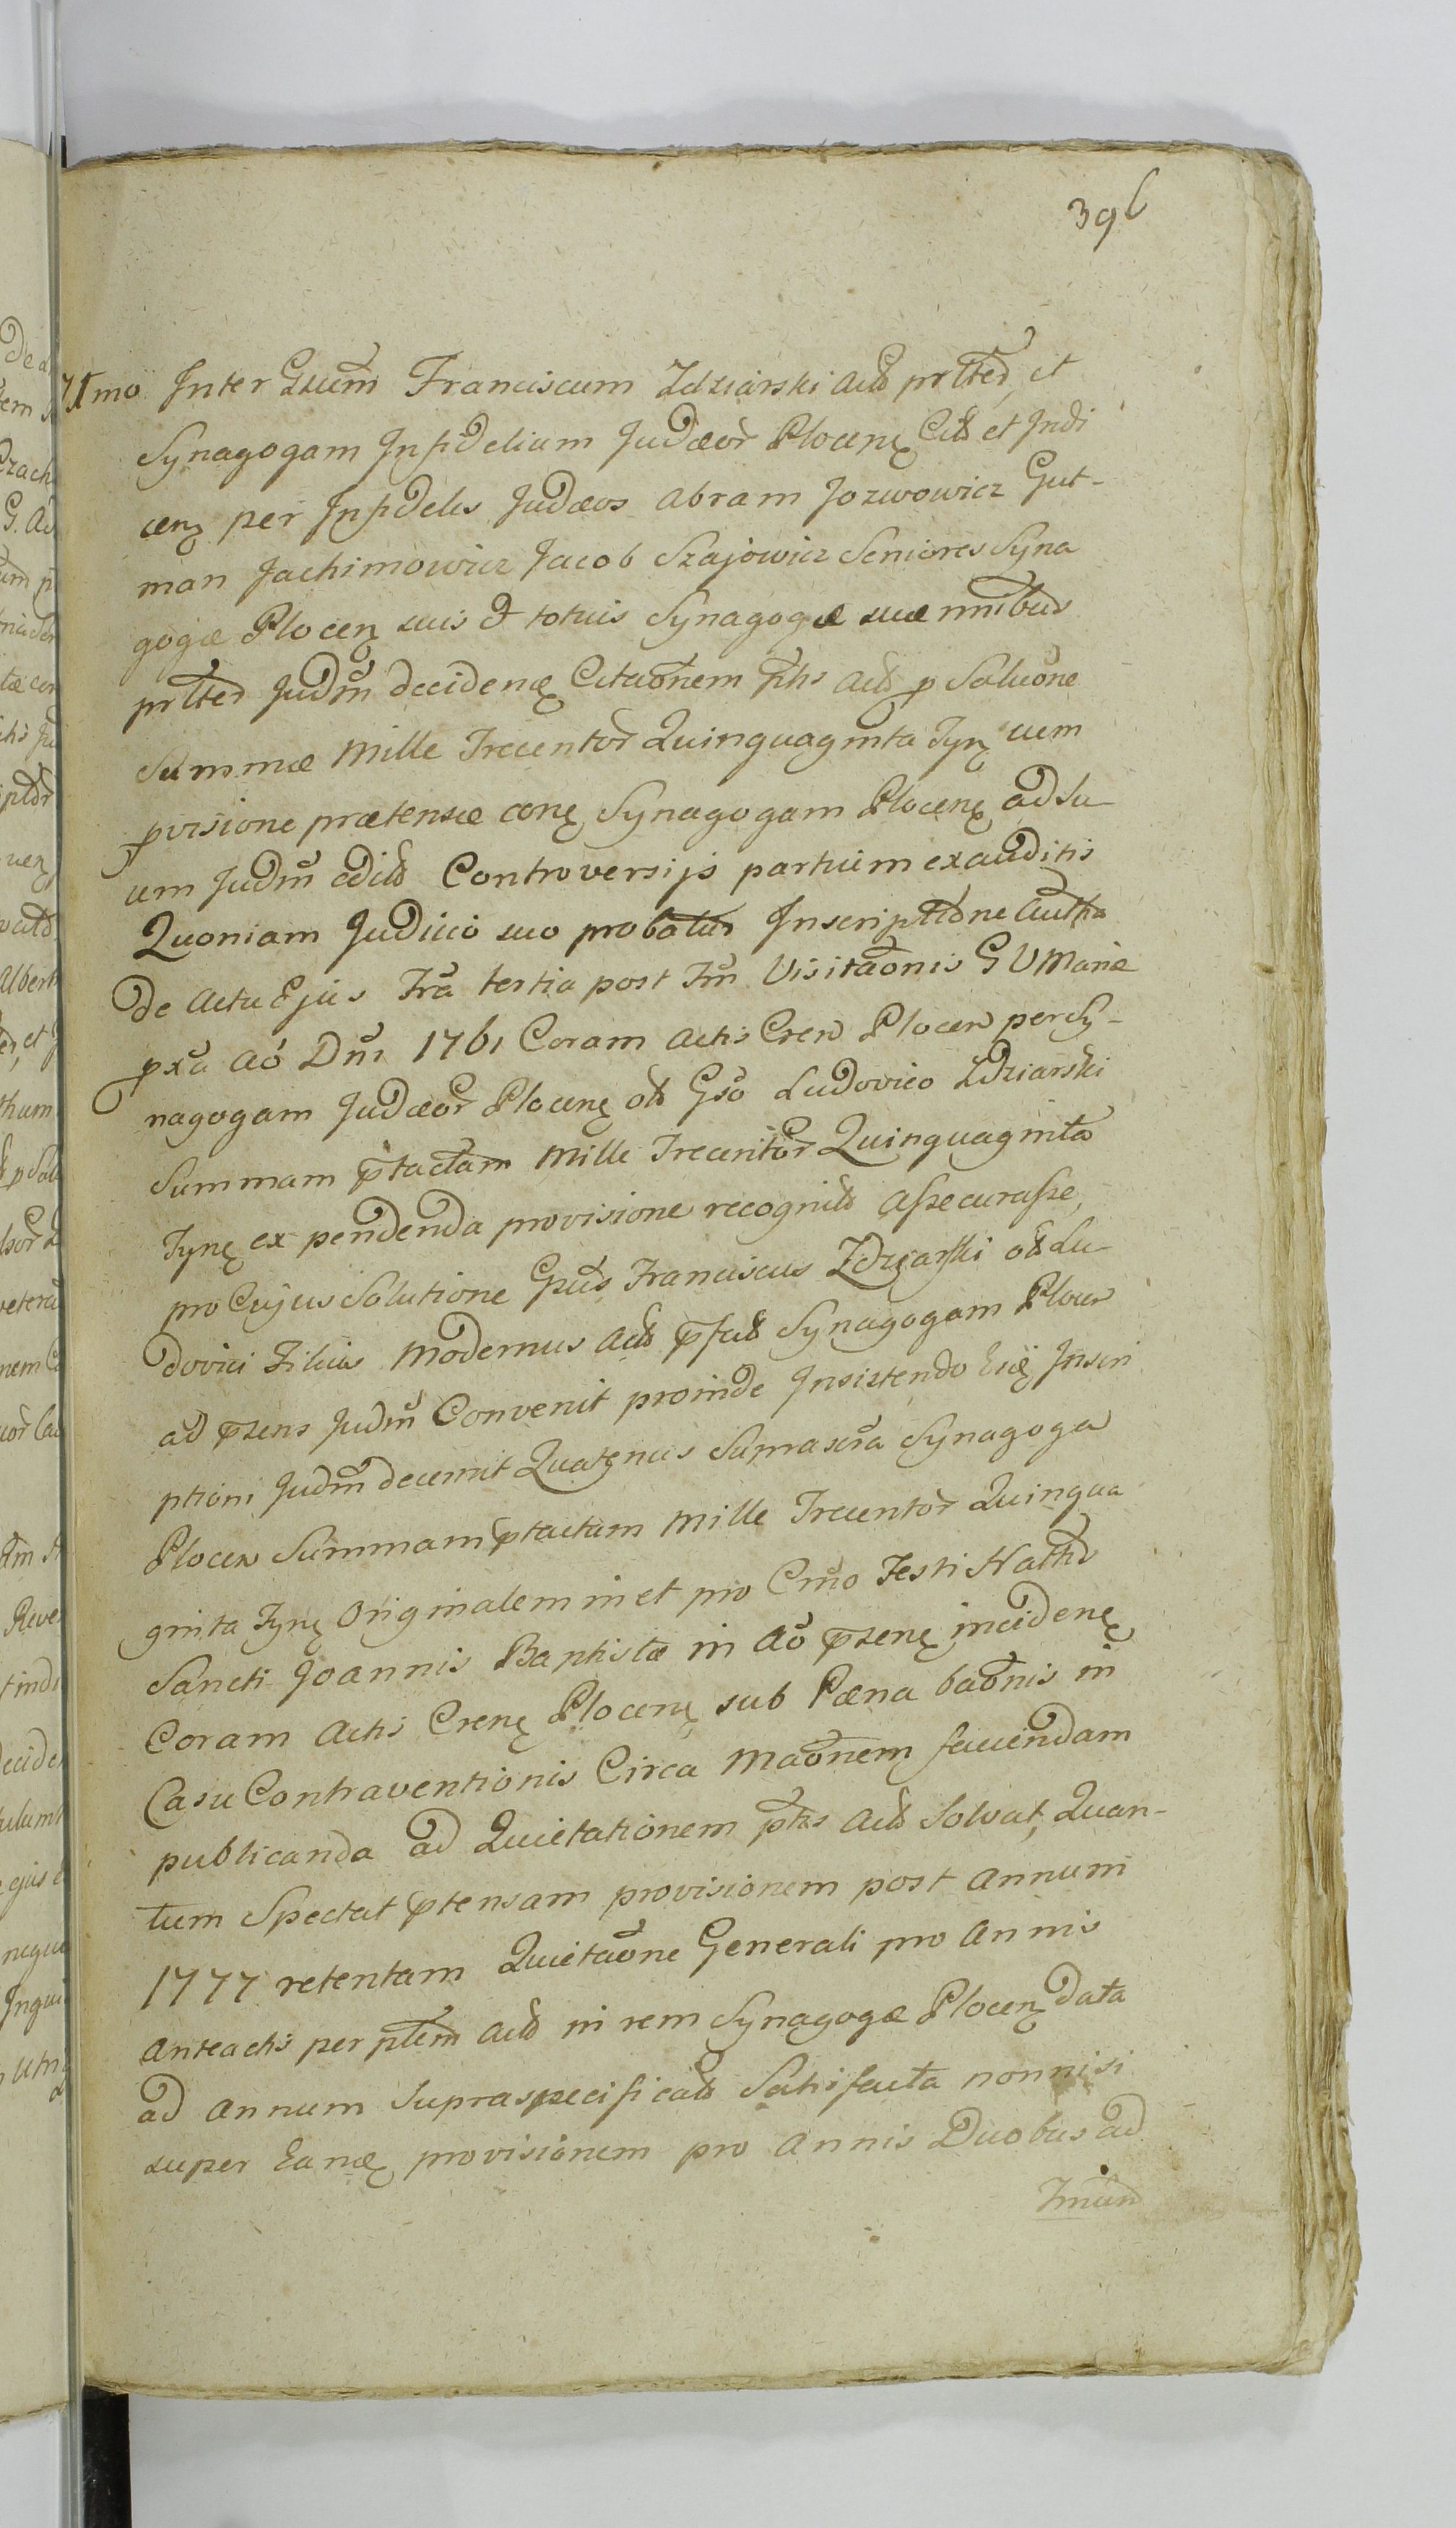 396
71mo Inter Gsum Franciscum Zdziarski Actd prlted, et
Synagogam Infidelium Judæor Plocenę Cttd et Indi
cenę per Infideles Judæos Abram Jozwowicz Gut-
man Jachimowicz Jacob Szajowicz Seniores Syna
gogæ Plocenę suis et totius Synagogæ suæ nnibus
prlted Judm decidenę Citaonem pths Actd p Soluone
Summæ Mille Trecentor Quinquaginta Fynę cum
pvisione prætensæ conę Synagogam Plocenę ad Ju-
um Judm edictd Controversijs partium exauditis
Quoniam Judicio suo probatur Inscriptione Autha
De Actu Ejus Fra tertia post Ftm Visitaonis G V Mariæ
pxa Ao Dni 1761 Coram Actis Cren Plocen per Sy-
nagogam Judæor Plocenę otd Gso Ludovico Zdziarski
Summam ptactam Mille Trecentor Quinquaginta
Fynę ex pendenda provisione recognitd Assecurasse,
pro Cujus Solutione Gsus Franciscus Zdziarski otd Lu-
dovici Filius Modernus Actd pfatd Synagogam Plocen
ad pzens Judm Convenit proinde Insistendo Eidę Inscri
ptioni Judm decernit Quatenus Suprascra Synagoga
Plocen Summam ptactam Mille Trecentor Quinqua
ginta Fynę Originalem in et pro Crno Festi Nattis
Sancti Joannis Baptistæ in Ao pzenę incidenę
Coram Actis Crenę Plocenę sub Pæna baonis in
Casu Contraventionis Circa Maonem faciendam
publicanda ad Quietationem pths Actd Solvat, Quan-
tum Spectat ptensam provisionem post Annum
1777 retentam Quietaone Generali pro Annis
Anteactis per pltem Actd in rem Synagogæ Plocenę data
ad Annum Supraspecificatd Satisfacta nonnisi
super Eandę provisionem pro Annis Duobus ad